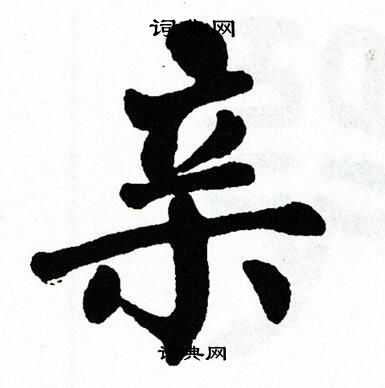 词典网
亲
词典网